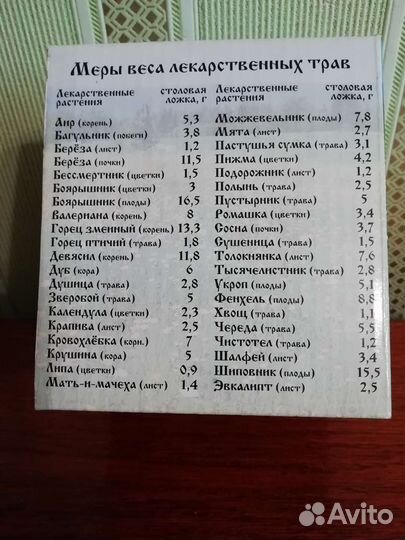 Меры веса лекарственных трав
Лекарственные растения столовая ложка, г
Аир (корень) 5,3
Багульник (побеги) 3,8
Берёза (лист) 1,2
Берёза (почки) 11,5
Бессмертник (цветки) 1,5
Боярышник (цветки) 3
Боярышник (плоды) 16,5
Валериана (корень) 8
Горец змеиный (корень) 13,3
Горец птичий (трава) 1,8
Девясил (корень) 11,8
Дуб (кора) 6
Душица (трава) 2,8
Зверобой (трава) 5
Календула (цветки) 2,3
Крапива (лист) 2,5
Кровохлёбка (корн.) 7
Крушина (кора) 5
Липа (цветки) 0,9
Мать-и-мачеха (лист) 1,4
Лекарственные растения столовая ложка, г
Можжевельник (плоды) 7,8
Мята (лист) 2,7
Пастушья сумка (трава) 3,1
Пижма (цветки) 4,2
Подорожник (лист) 1,2
Полынь (трава) 2,5
Пустырник (трава) 5
Ромашка (цветки) 3,4
Сосна (почки) 3,7
Сушеница (трава) 1,5
Толокнянка (лист) 7,6
Тысячелистник (трава) 2,8
Укроп (плоды) 5,1
Фенхель (плоды) 8,8
Хвощ (трава) 1,1
Череда (трава) 5,5
Чистотел (трава) 1,2
Шалфей (лист) 3,4
Шиповник (плоды) 15,5
Эвкалипт (лист) 2,5
Avito